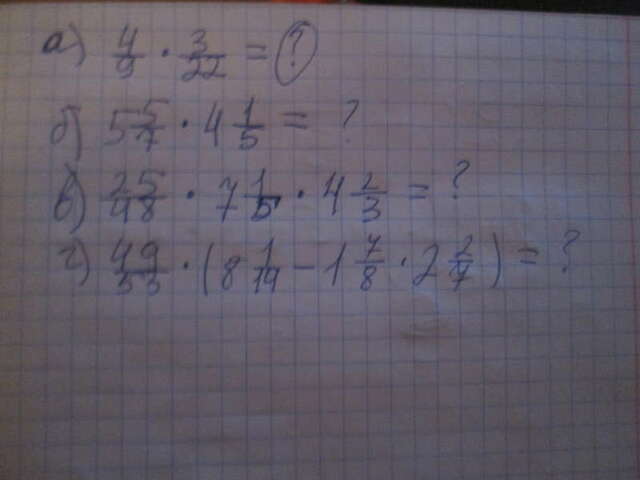 а) 4/9 · 3/22 = ?
б) 5 5/7 · 4 1/5 = ?
в) 25/48 · 7 1/5 · 4 2/3 = ?
г) 49/53 · (8 1/14 − 1 7/8 · 2 2/7) = ?